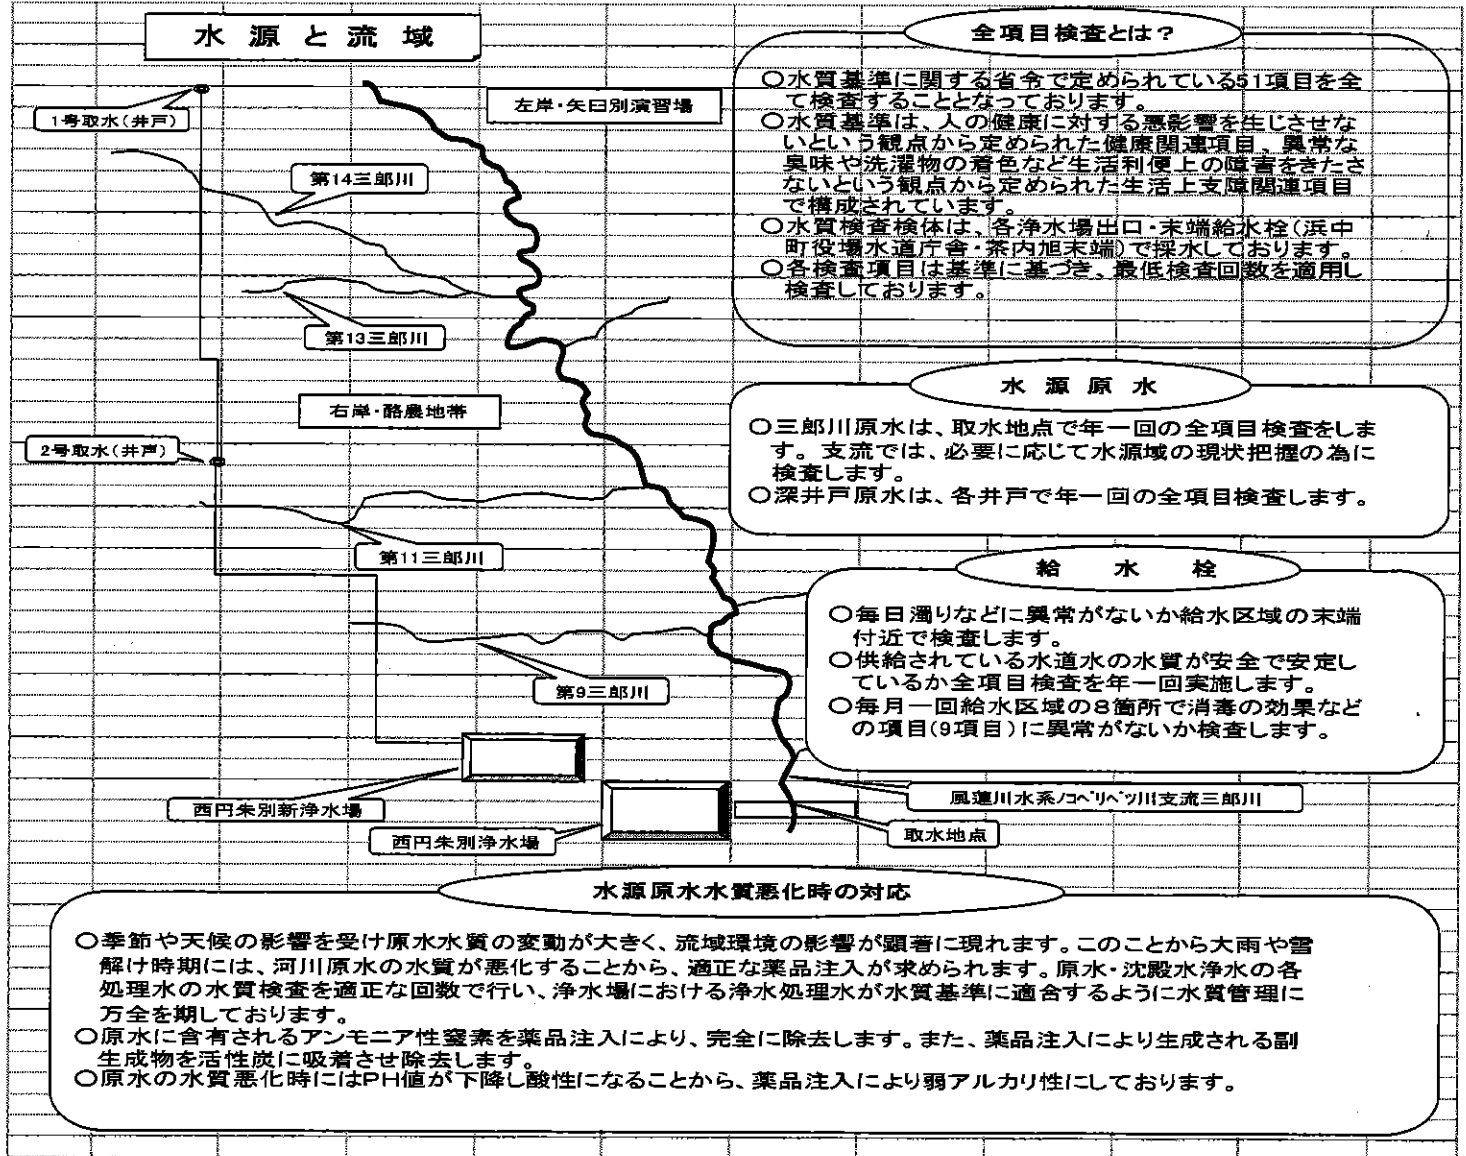 水源と流域
1号取水(井戸)
左岸・矢臼別演習場
第14三郎川
第13三郎川
右岸・酪農地帯
2号取水(井戸)
第11三郎川
第9三郎川
西円朱別新浄水場
西円朱別浄水場
風蓮川水系ノコベリベツ川支流三郎川
取水地点
全項目検査とは?
○水質基準に関する省令で定められている51項目を全
て検査することとなっております。
○水質基準は、人の健康に対する悪影響を生じさせな
いという観点から定められた健康関連項目、異常な
臭味や洗濯物の着色など生活利便上の障害をきたさ
ないという観点から定められた生活上支障関連項目
で構成されています。
○水質検査検体は、各浄水場出口・末端給水栓(浜中
町役場水道庁舎・茶内旭末端)で採水しております。
○各検査項目は基準に基づき、最低検査回数を適用し
検査しております。
水源原水
○三郎川原水は、取水地点で年一回の全項目検査をしま
す。支流では、必要に応じて水源域の現状把握の為に
検査します。
○深井戸原水は、各井戸で年一回の全項目検査します。
給水栓
○毎日濁りなどに異常がないか給水区域の末端
付近で検査します。
○供給されている水道水の水質が安全で安定し
ているか全項目検査を年一回実施します。
○毎月一回給水区域の8箇所で消毒の効果など
の項目(9項目)に異常がないか検査します。
水源原水水質悪化時の対応
○季節や天候の影響を受け原水水質の変動が大きく、流域環境の影響が顕著に現れます。このことから大雨や雪
解け時期には、河川原水の水質が悪化することから、適正な薬品注入が求められます。原水・沈殿水浄水の各
処理水の水質検査を適正な回数で行い、浄水場における浄水処理水が水質基準に適合するように水質管理に
万全を期しております。
○原水に含有されるアンモニア性窒素を薬品注入により、完全に除去します。また、薬品注入により生成される副
生成物を活性炭に吸着させ除去します。
○原水の水質悪化時にはPH値が下降し酸性になることから、薬品注入により弱アルカリ性にしております。